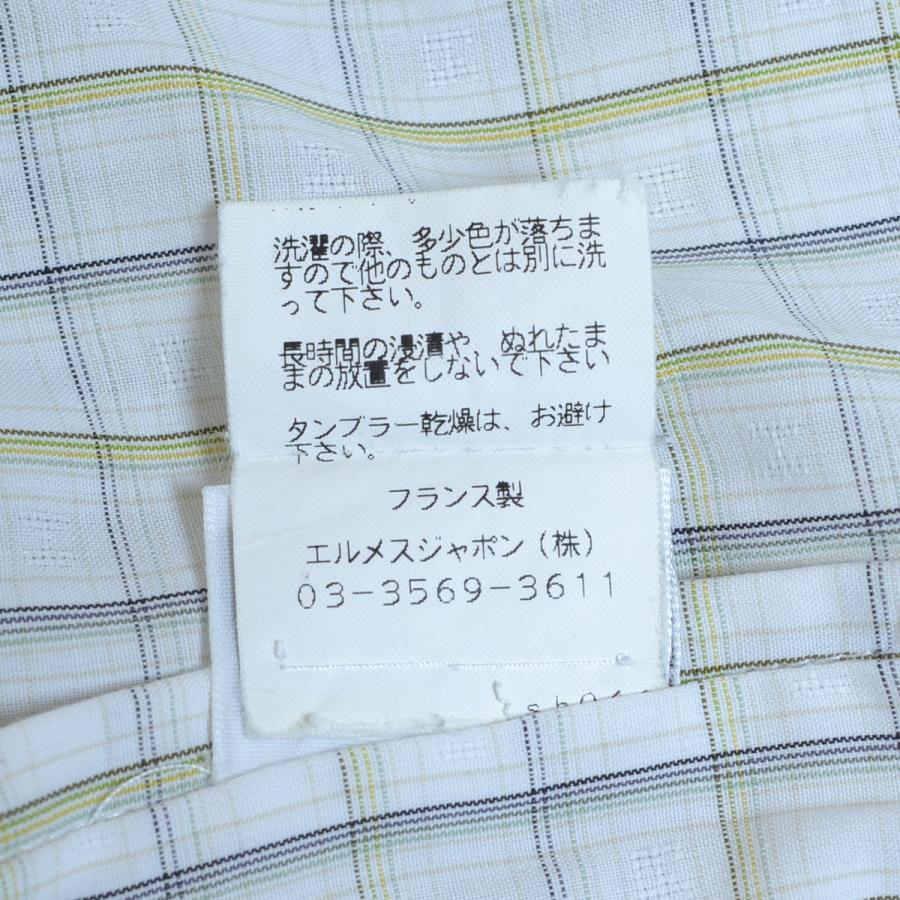 洗濯の際、多少色が落ちま
すので他のものとは別に洗
って下さい。
長時間の浸漬や、ぬれたま
まの放置をしないで下さい
タンブラー乾燥は、お避け
下さい。
フランス製
エルメスジャポン（株）
03-3569-3611